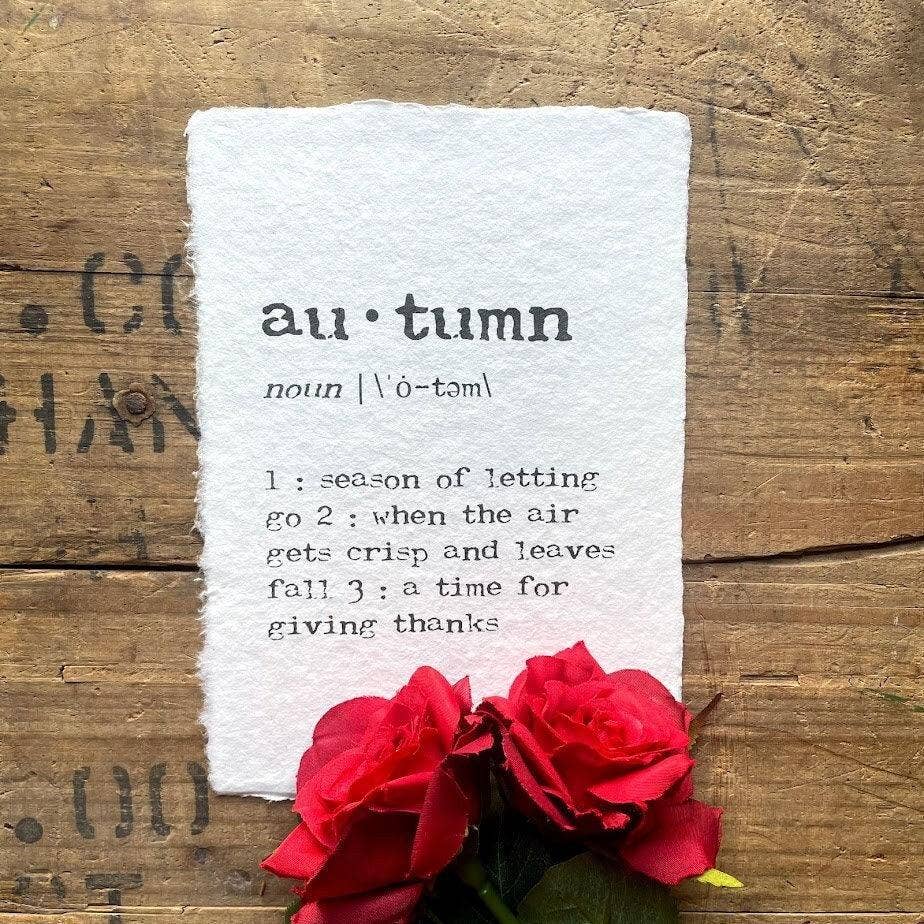 au·tumn
noun | \ˈȯ-təm\
1 : season of letting
go 2 : when the air
gets crisp and leaves
fall 3 : a time for
giving thanks